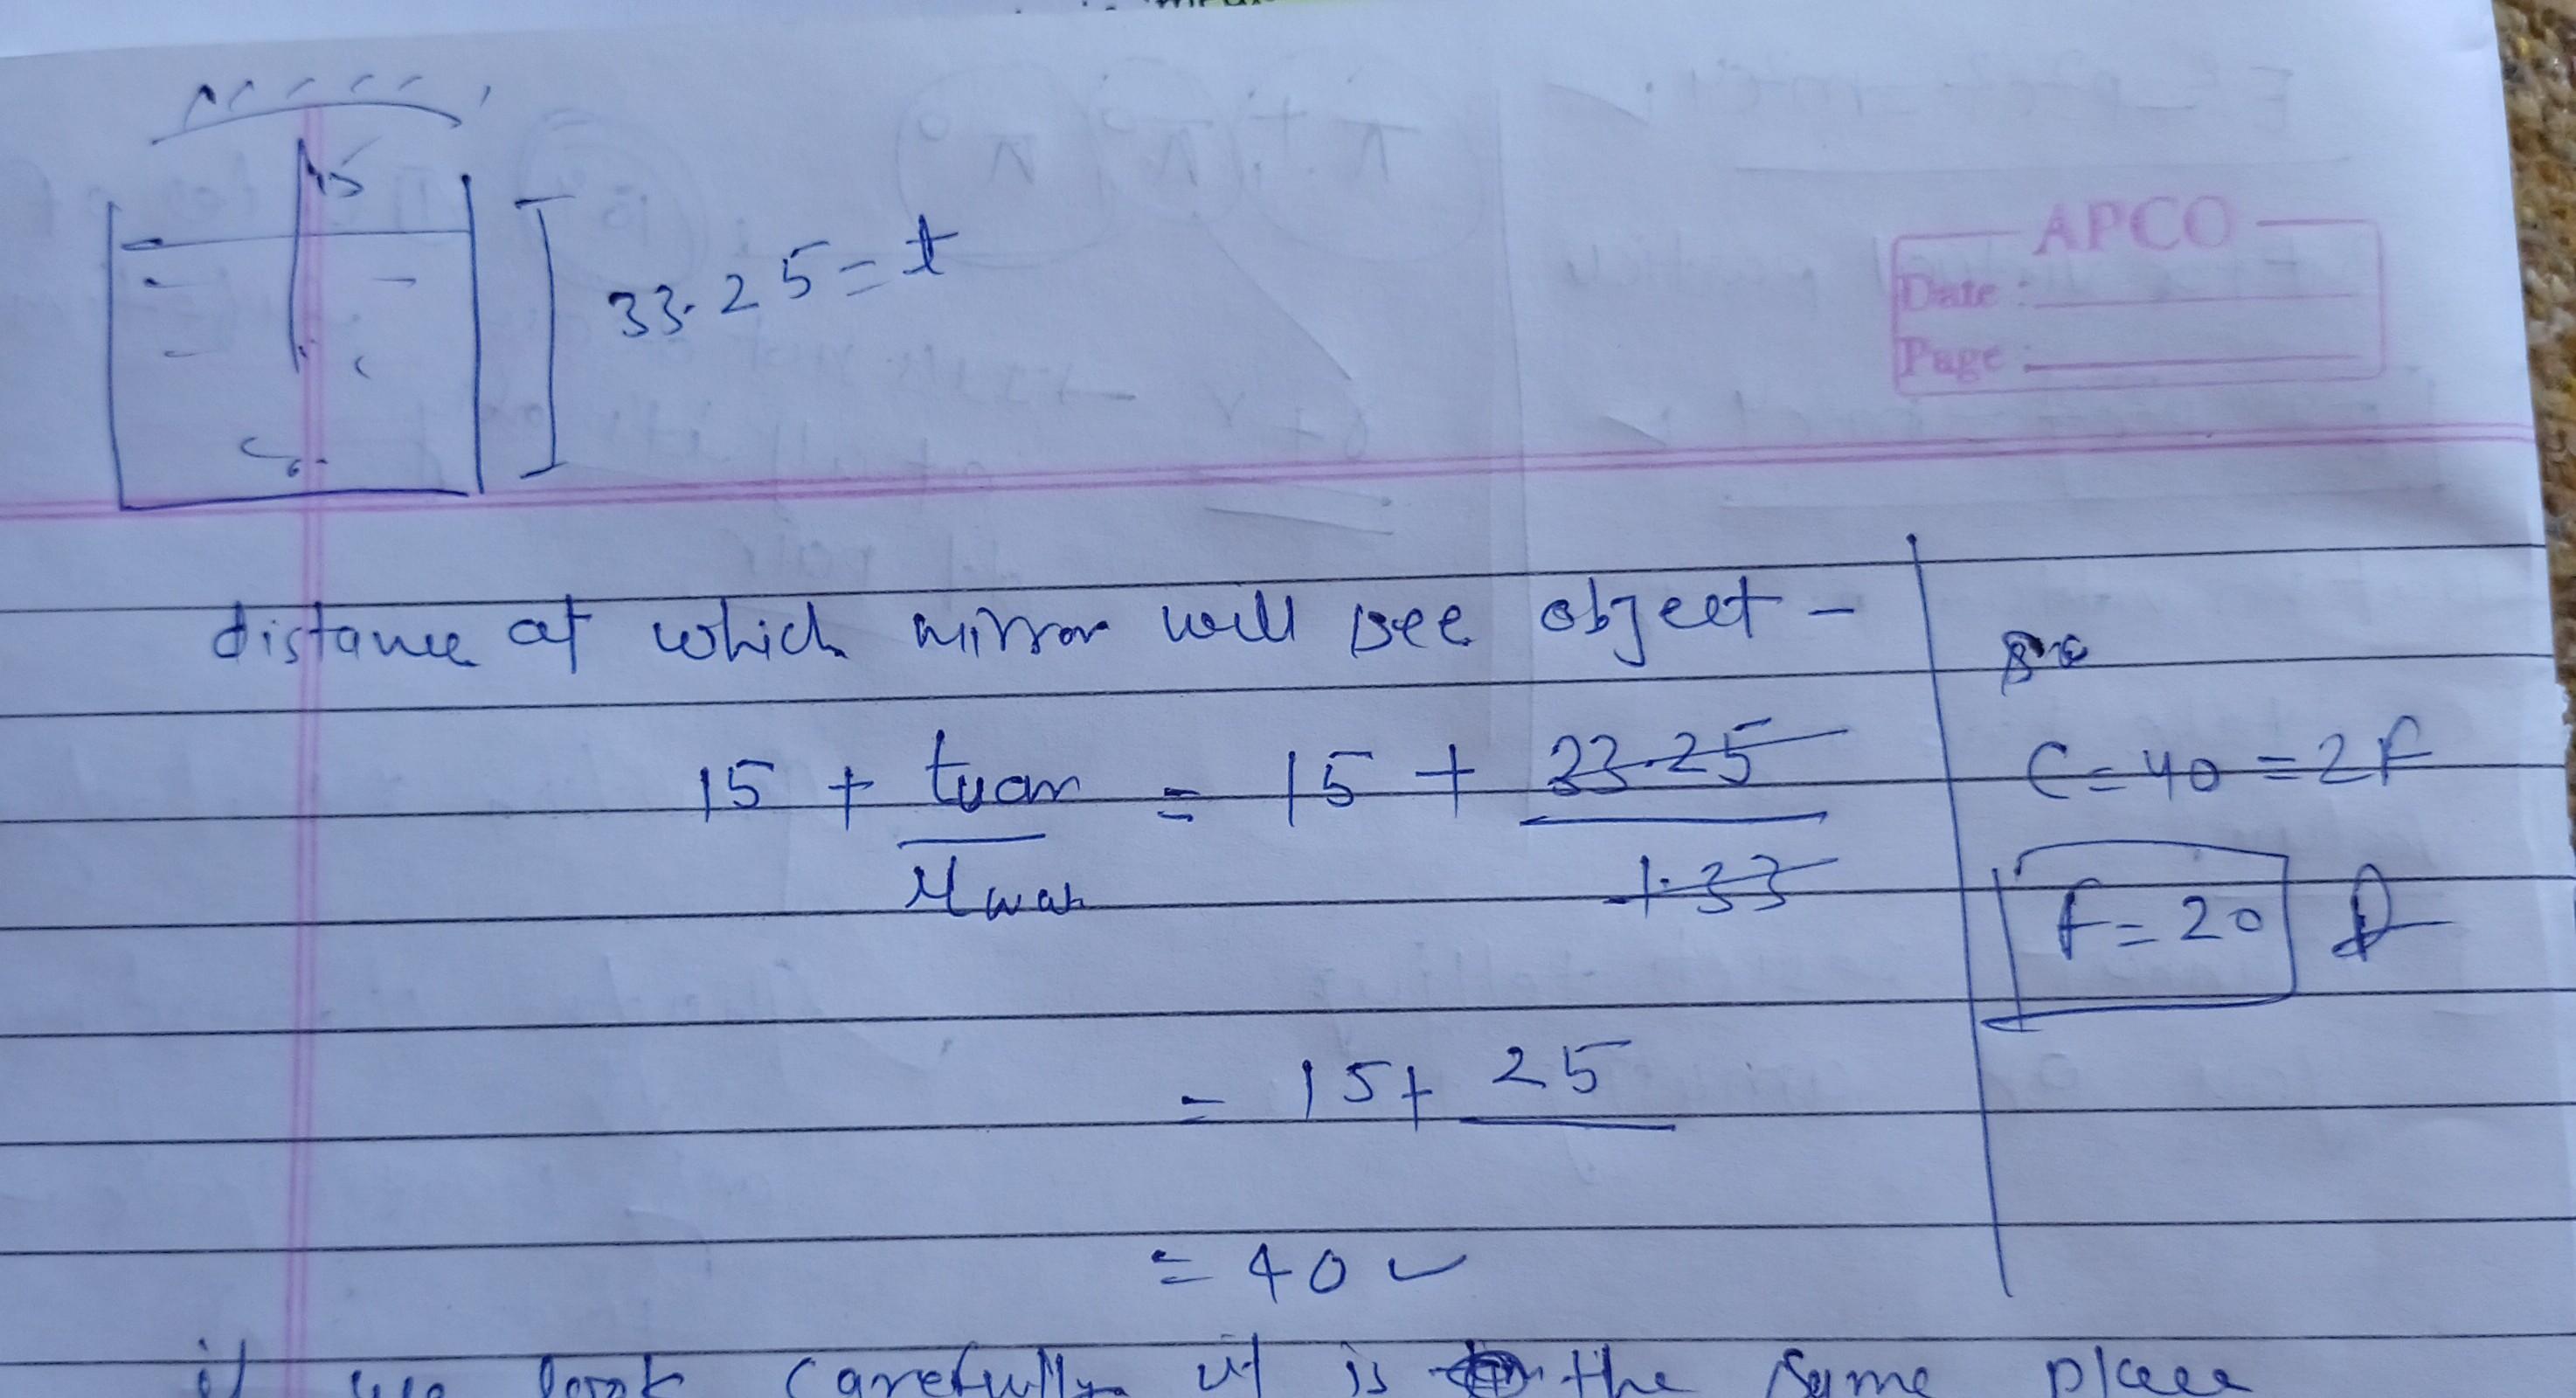 15
33.25 = t
APCO
Date :
Page :
distance at which mirror will see object -
15 + twar / μwar = 15 + 33.25 / 1.33
C = 40 = 2F
F = 20
= 15 + 25
= 40 ✓
if we look carefully it is the same place